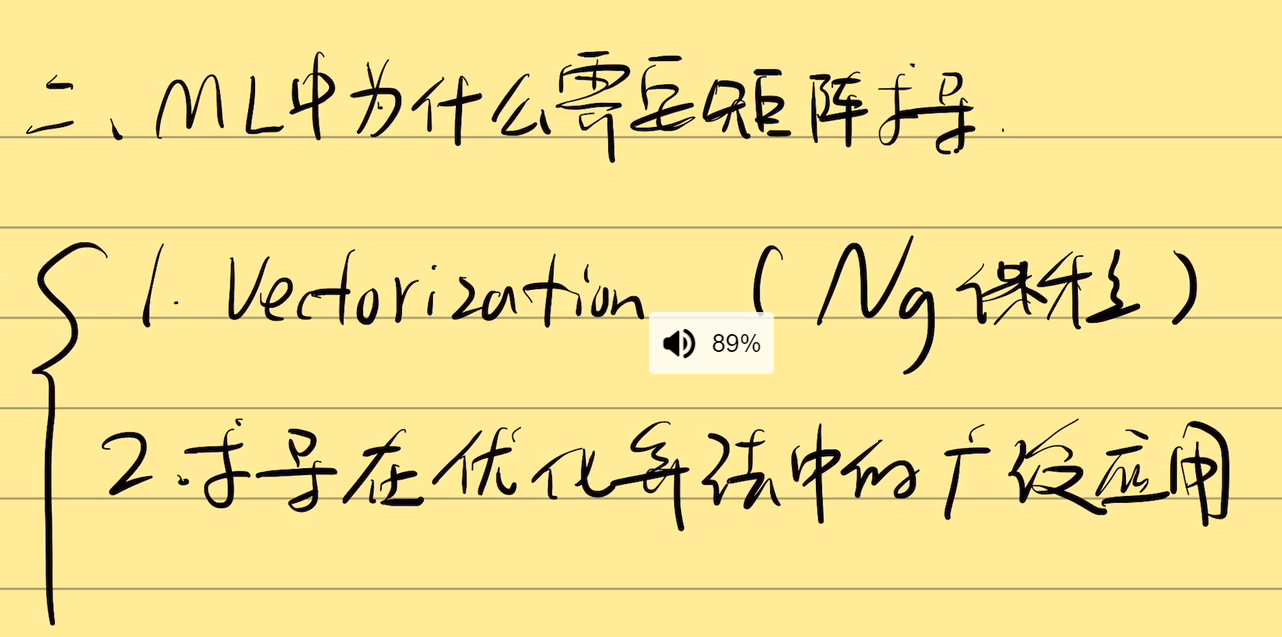 二、ML中为什么需要矩阵求导.
1. Vectorization (Ng 课程)
89%
2.求导在优化算法中的广泛应用